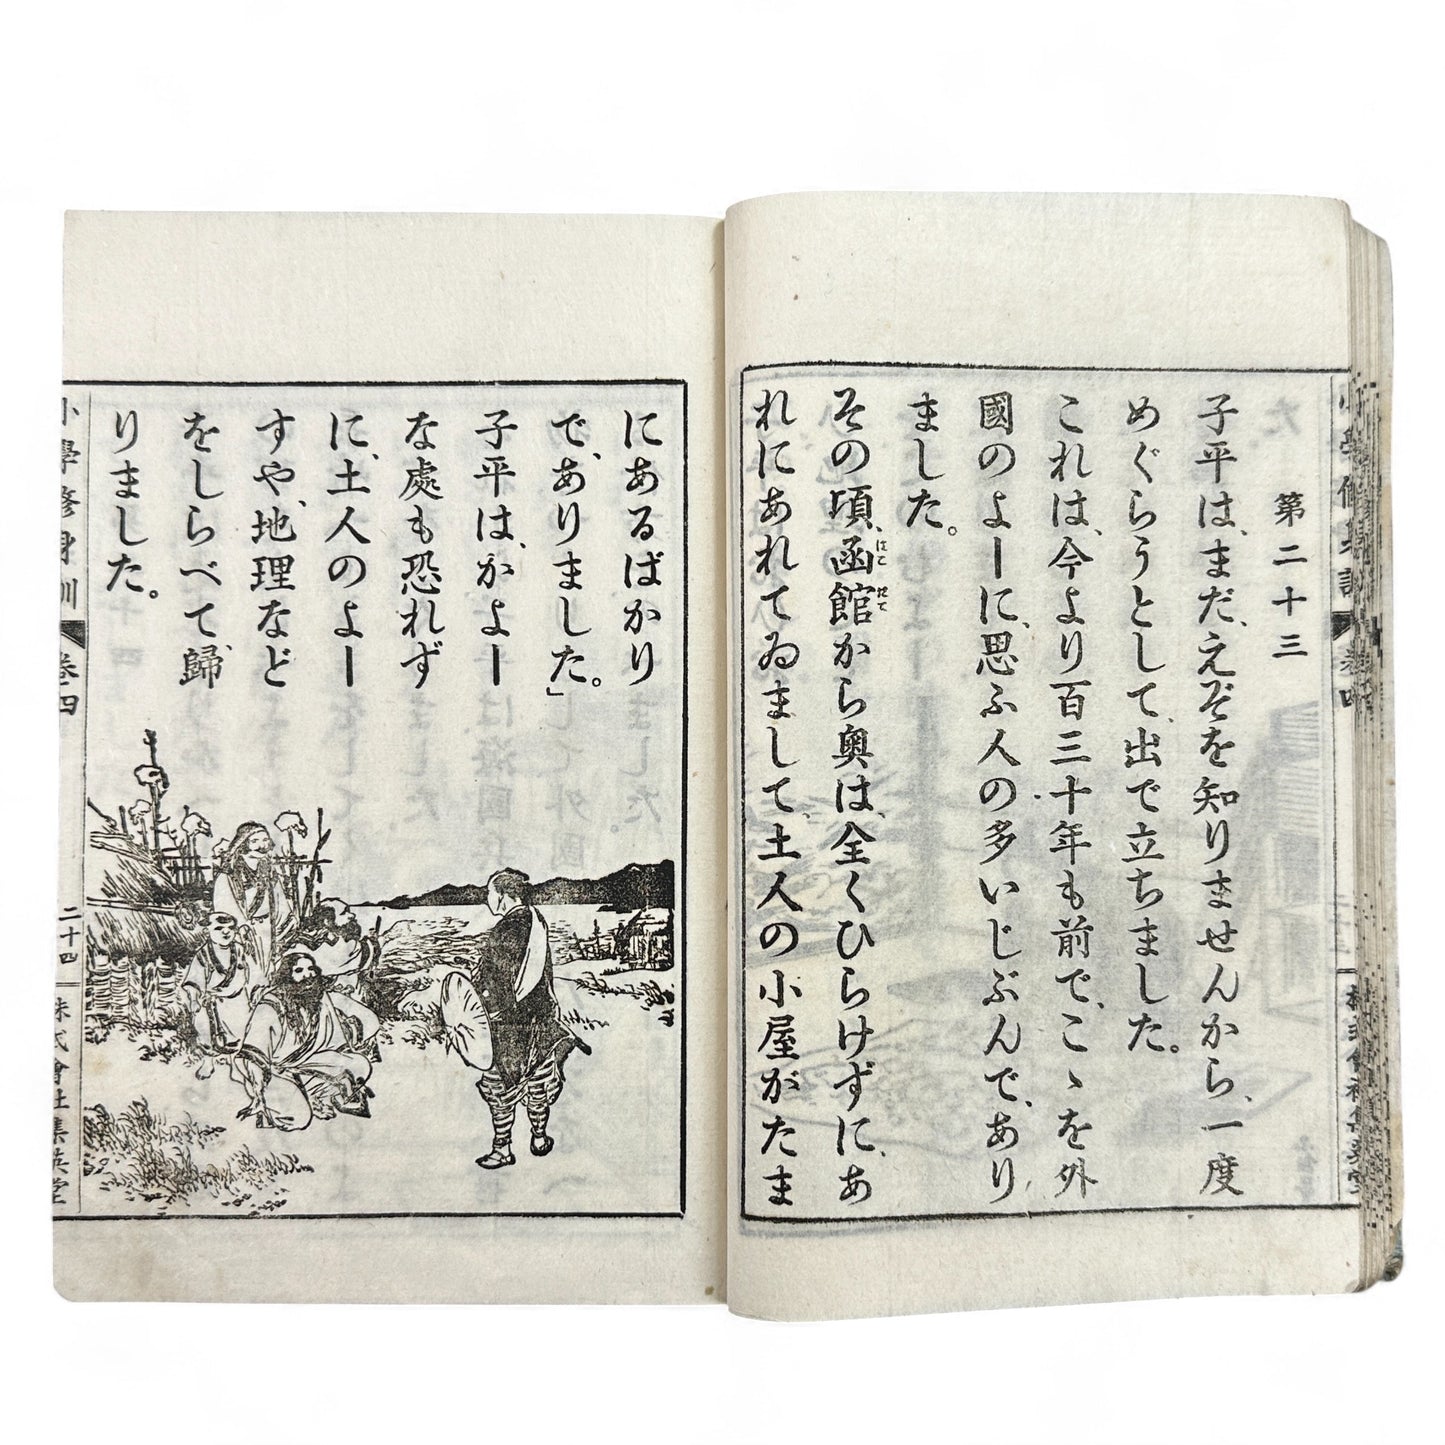 第二十三
子平は、まだ、えぞを知りませんから、一度
めぐらうとして、出で立ちました。
これは、今より百三十年も前で、こゝを外
國のよーに思ふ人の多いじぶんであり
ました。
その頃、函館から奥は、全くひらけずに、あ
はこ だて
れにあれてゐまして、土人の小屋がたま
にあるばかり
で、ありました。」
子平は、かよー
な處も恐れず
に、土人のよー
すや、地理など
をしらべて、歸
りました。
小學修身訓 巻四 二十四 株式會社集英堂